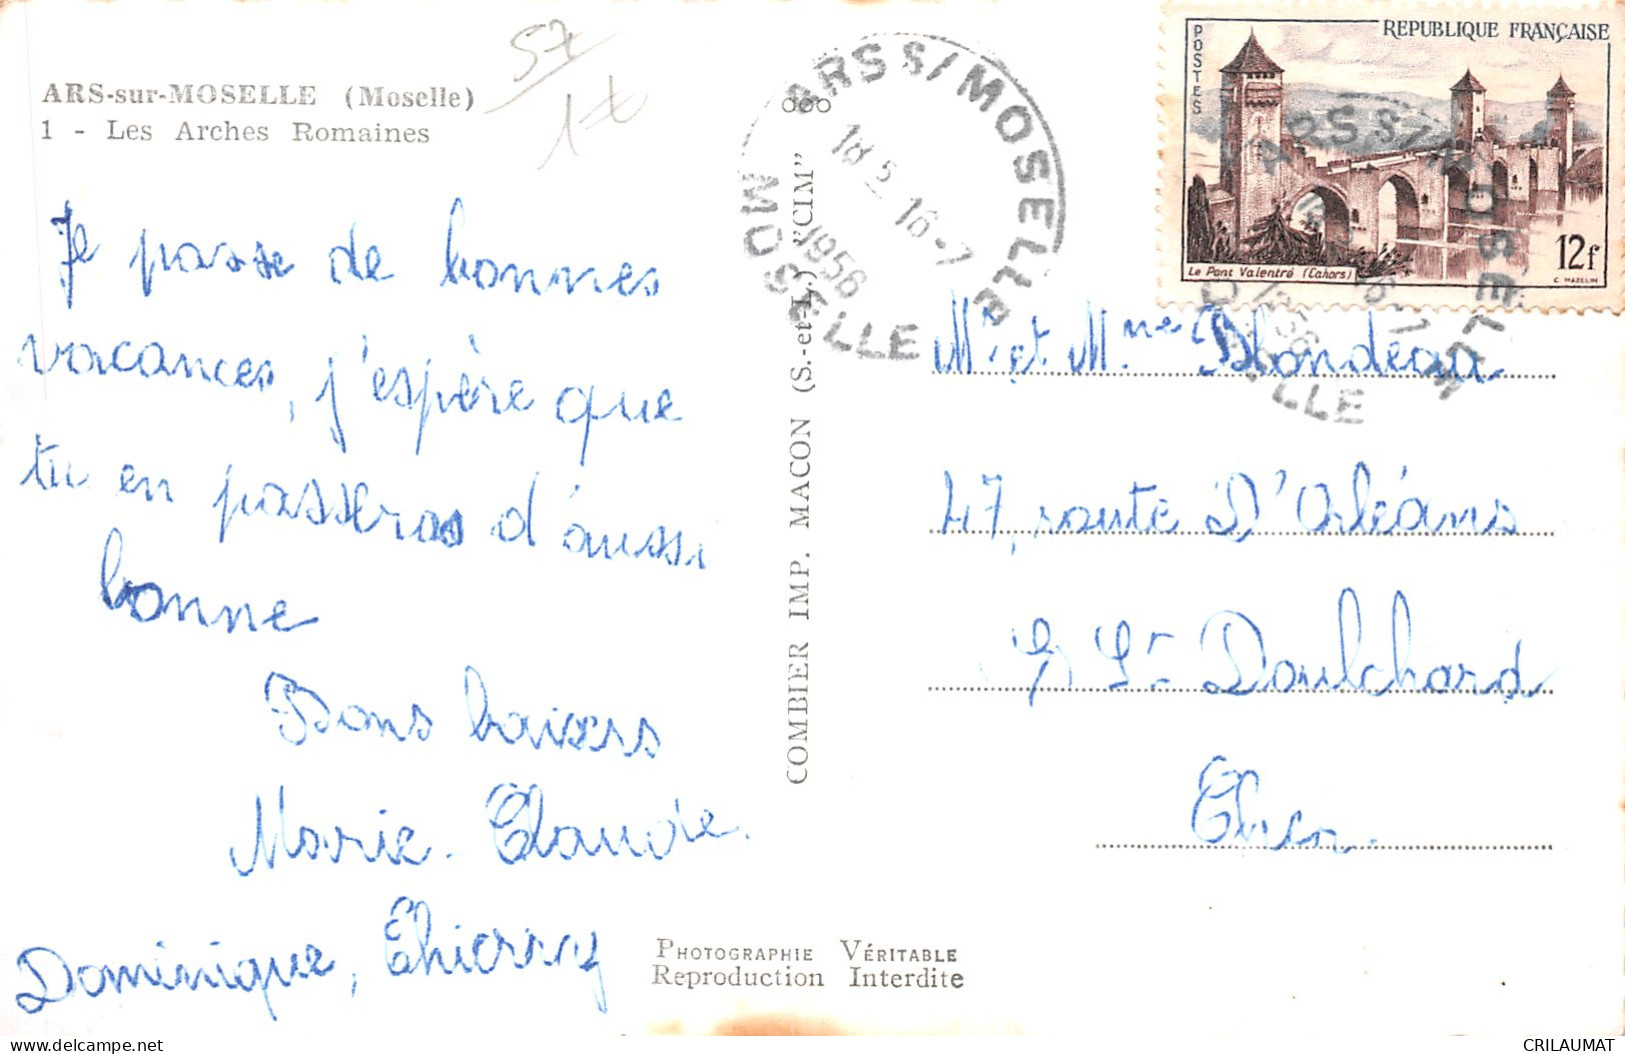 ARS-sur-MOSELLE (Moselle)
1 - Les Arches Romaines
57
Je passe de bonnes
vacances, j'espère que
tu en passeras d'aussi
bonne
Bons baisers
Marie-Claude.
Dominique, Thierry
COMBIER IMP. MACON (S.-et-L.) "CIM"
PHOTOGRAPHIE VÉRITABLE
Reproduction Interdite
ARS S/ MOSELLE
18 5 16-7
1956
MOSELLE
POSTES
REPUBLIQUE FRANÇAISE
Le Pont Valentré (Cahors)
12f
C. MAZELIN
Mr et Mme Blondeau
47, route D'Orléans
St Doulchard
Cher.
delcampe.net
CRILAUMAT